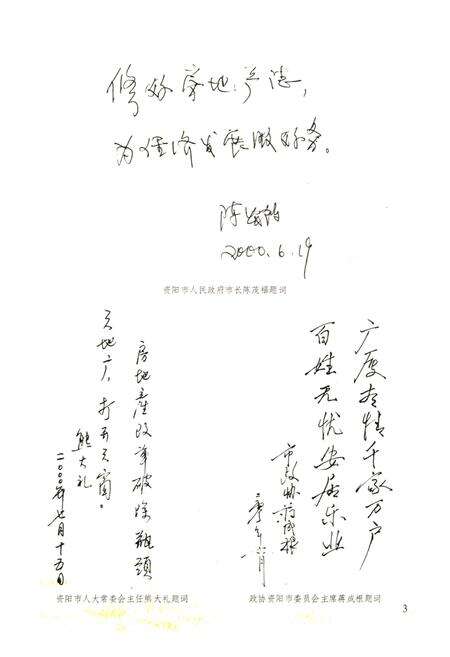 修好房地产志，
为经济发展做好服务。
陈茂禧
2000.6.19
资阳市人民政府市长陈茂禧题词
房地產改革破除瓶頸
天地广，打开天窗。
熊大礼
二〇〇〇年七月十五日
资阳市人大常委会主任熊大礼题词
广厦有情千家万户
百姓无忧安居乐业
市政协蒋成根
政协资阳市委员会主席蒋成根题词
3